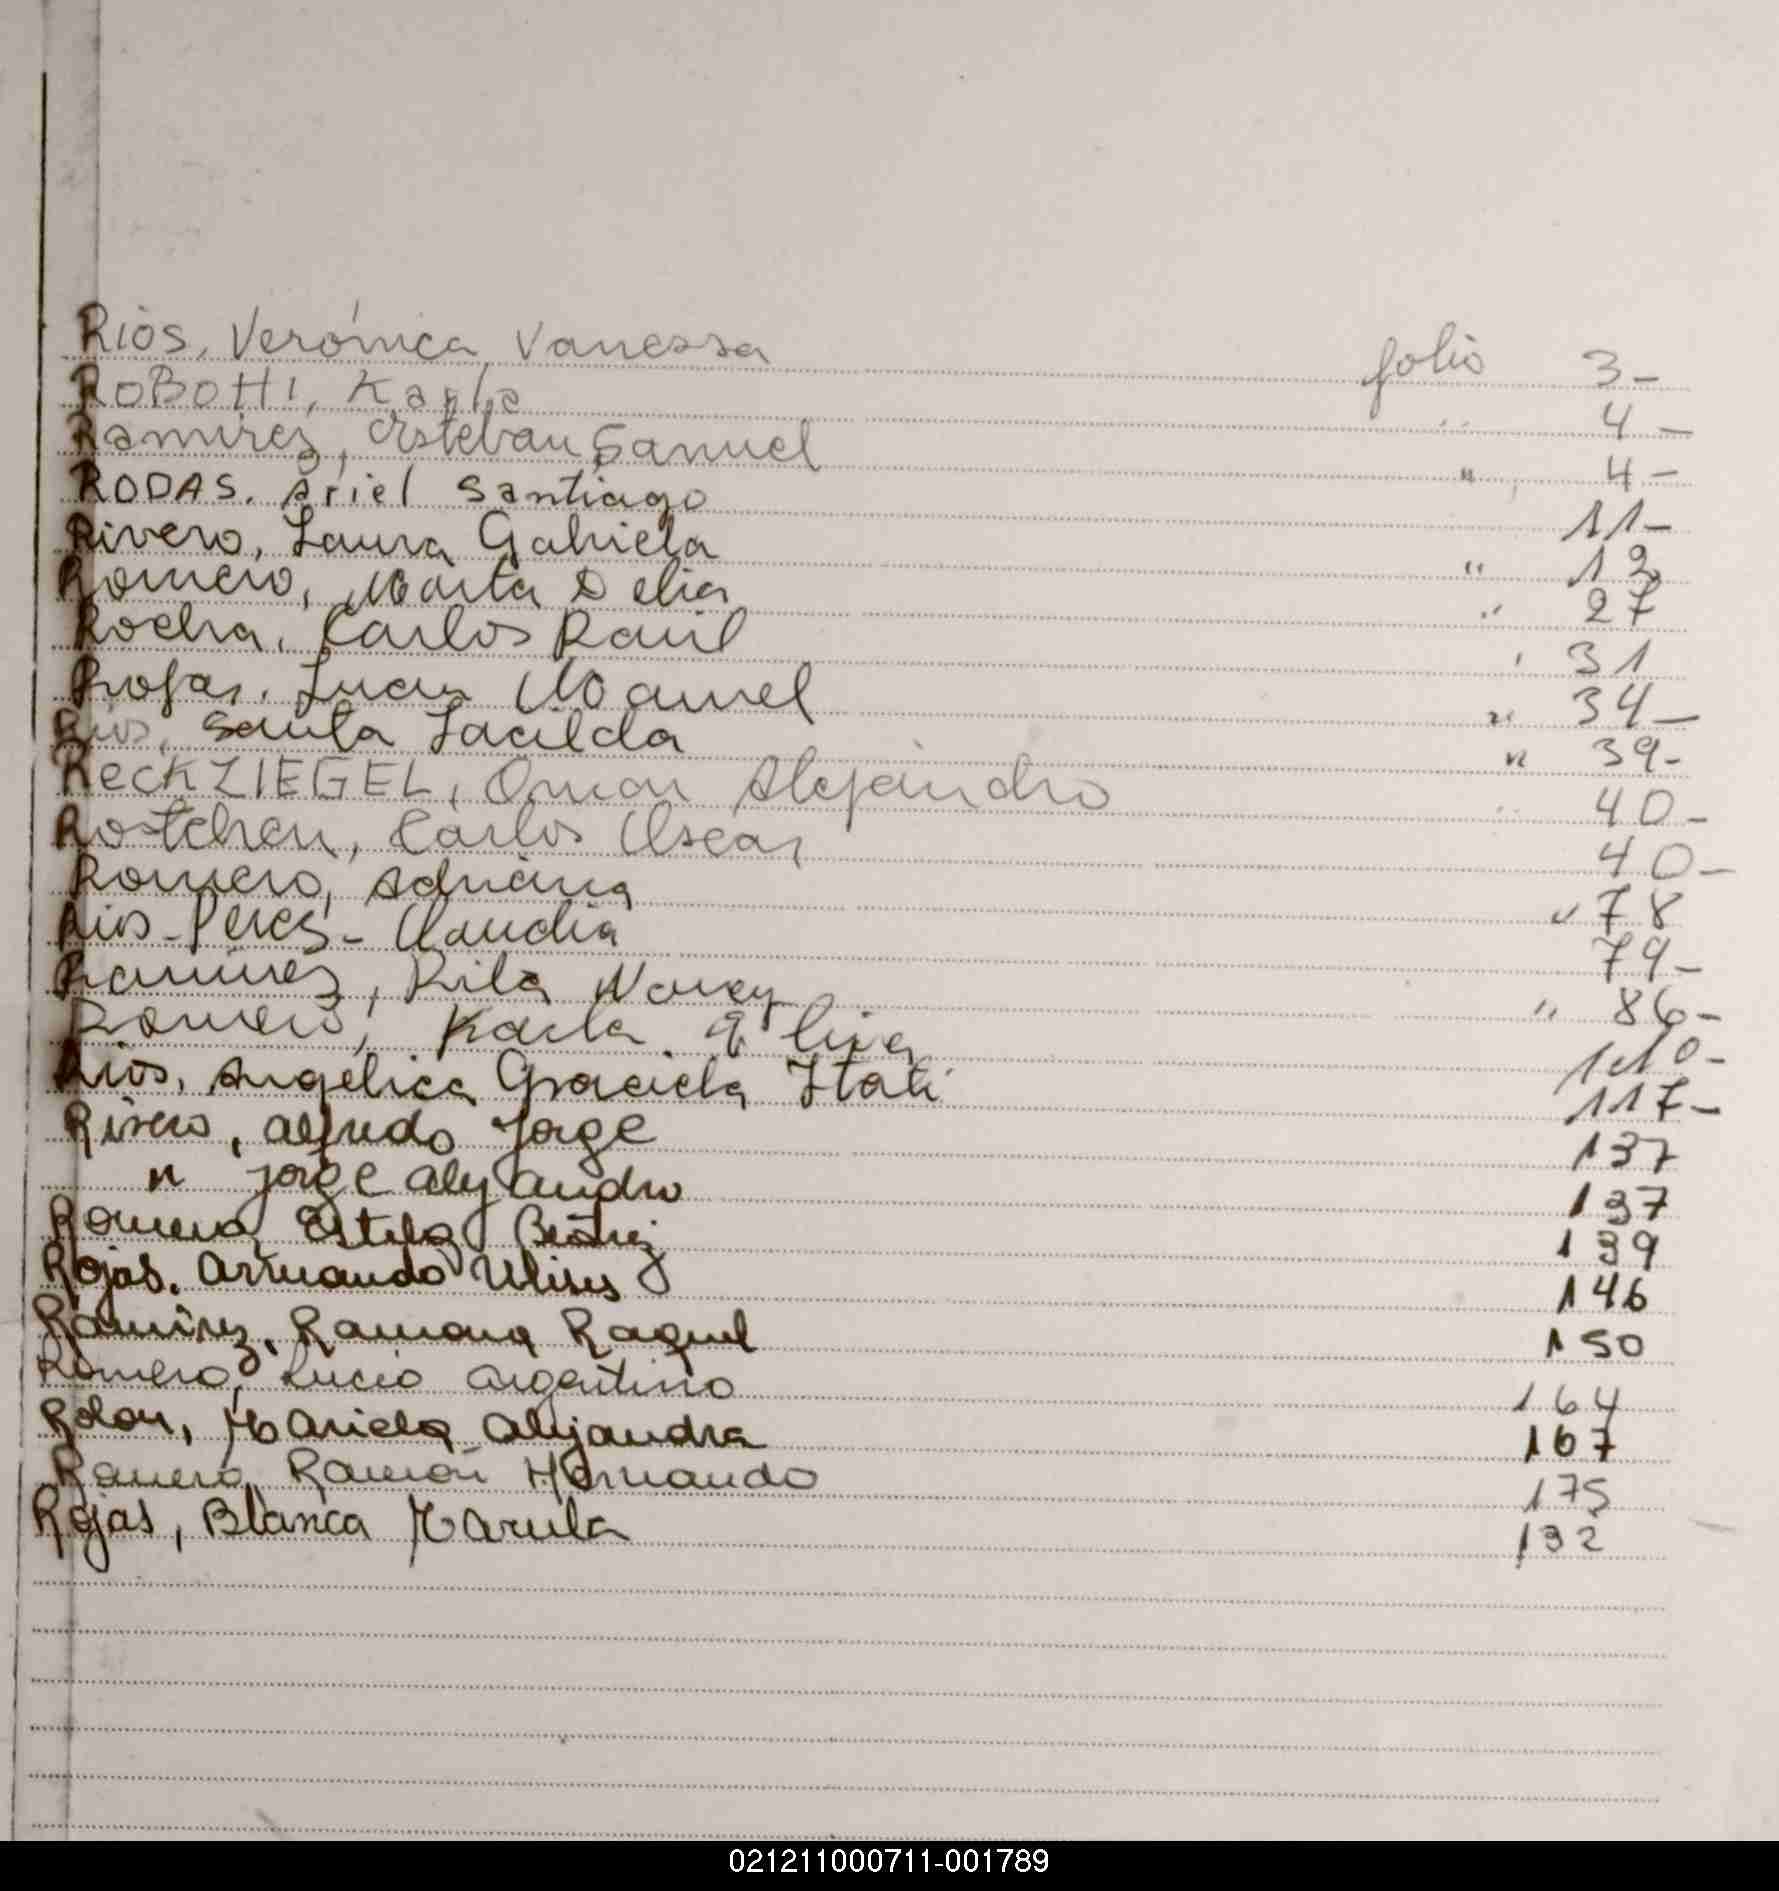 Rios, Verónica Vanessa folio 3-
ROBOTTI, Karla " 4-
Ramirez, Esteban Samuel " 4-
RODAS. Ariel Santiago 11-
Rivero, Laura Gabriela " 12
Romero, Marta Delia " 27
Rocha, Carlos Raúl " 31
Rojas, Lucas Manuel " 34-
Rios, Santa Lacilda " 39-
RECKZIEGEL, Omar Alejandro " 40-
Rostchen, Carlos Oscar 40-
Romero, Adriana " 78
Rios-Peres- Claudia 79-
Ramires, Rita Nancy " 86-
Romero, Karla 110-
Rios, Angélica Graciela Itati 117-
Rivero, Alfredo Jorge 137
" Jorge Alejandro 137
Romero Estela Beatriz 139
Rojas. Armando Ulises 146
Ramírez, Ramona Raquel 150
Romero, Lucio Argentino 164
Rolon, Mariela Alejandra 167
Romero Ramón Hernando 175
Rojas, Blanca Mariela 132
021211000711-001789